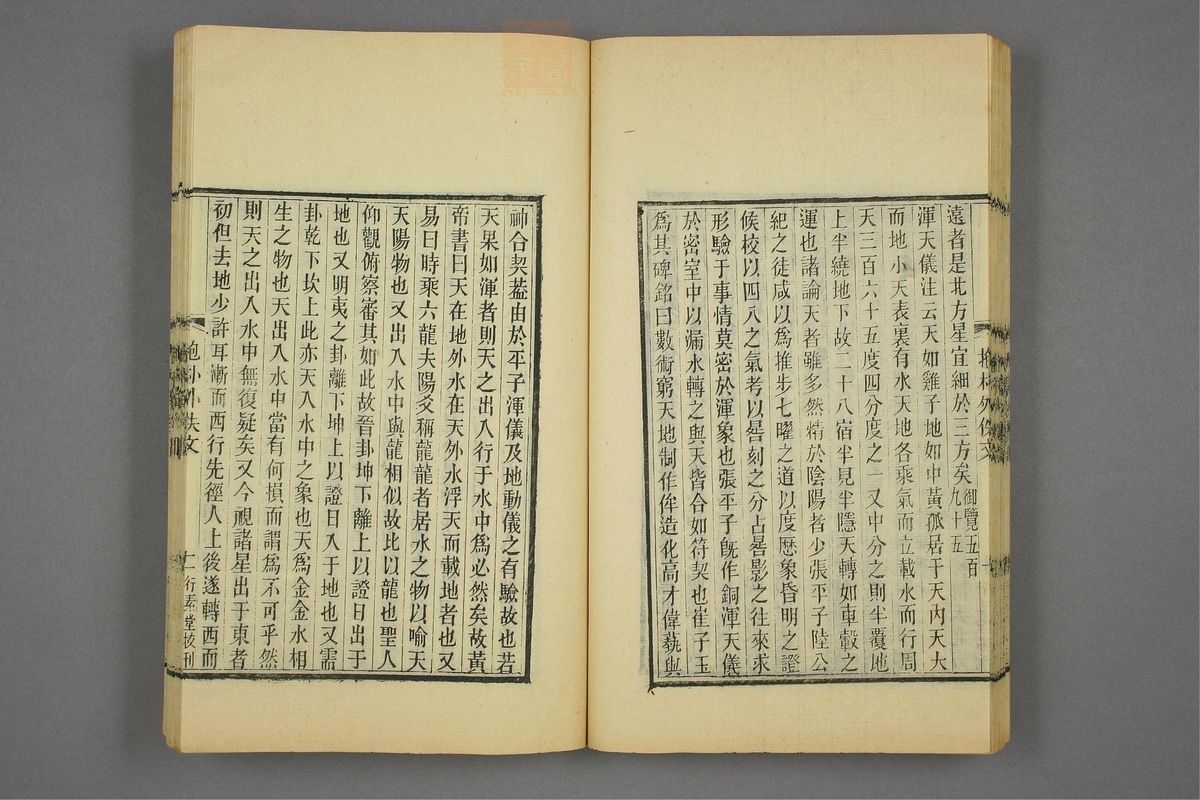 遠者是北方星宜細於三方矣御覽五百九十五
渾天儀注云天如雞子地如中黃孤居于天內天大
而地小天表裏有水天地各乘氣而立載水而行周
天三百六十五度四分度之一又中分之則半覆地
上半繞地下故二十八宿半見半隱天轉如車轂之
運也諸論天者雖多然精於陰陽者少張平子陸公
紀之徒咸以爲推步七曜之道以度厯象昏明之證
候校以四八之氣考以晷刻之分占晷影之往來求
形驗于事情莫密於渾象也張平子旣作銅渾天儀
於密室中以漏水轉之與天皆合如符契也崔子玉
爲其碑銘曰數術窮天地制作侔造化高才偉藝與
神合契葢由於平子渾儀及地動儀之有驗故也若
天杲如渾者則天之出入行于水中爲必然矣故黃
帝書曰天在地外水在天外水浮天而載地者也又
易曰時乘六龍夫陽爻稱龍龍者居水之物以喻天
天陽物也又出入水中與龍相似故比以龍也聖人
仰觀俯察審其如此故晉卦坤下離上以證日出于
地也又明夷之卦離下坤上以證日入于地也又需
卦乾下坎上此亦天入水中之象也天爲金金水相
生之物也天出入水中當有何損而謂爲不可乎然
則天之出入水中無復疑矣又今視諸星出于東者
初但去地少許耳漸而西行先徑人上後遂轉西而
行素堂校刊